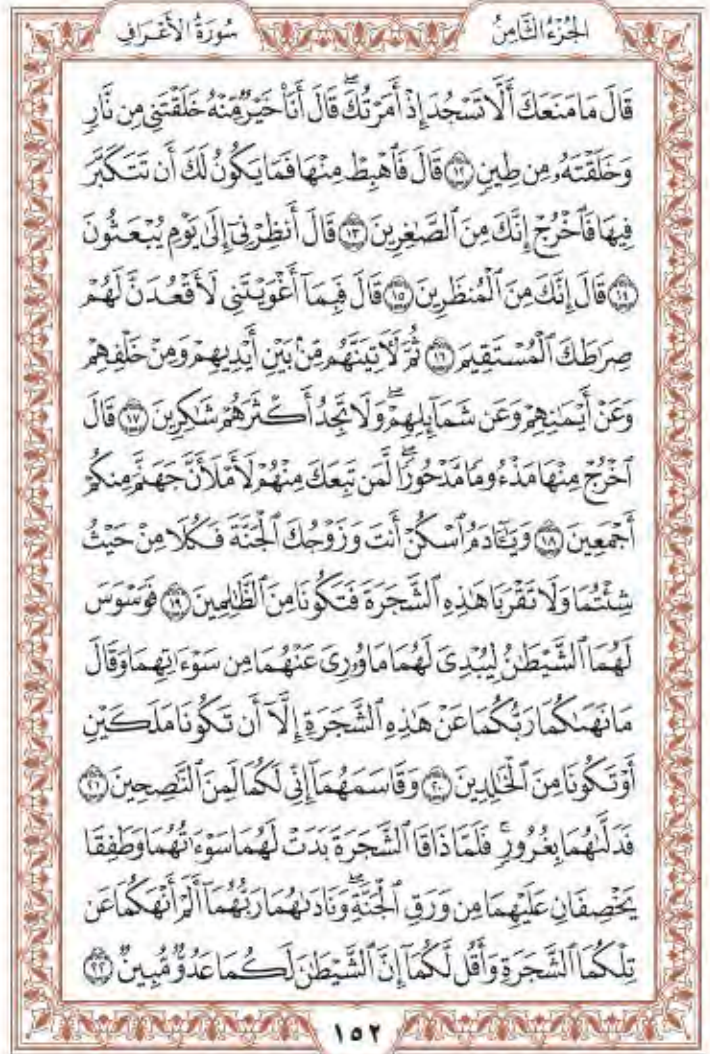 الجُزْءُ الثَّامِنُ
سُورَةُ الأَعْرَافِ
قَالَ مَا مَنَعَكَ أَلَّا تَسْجُدَ إِذْ أَمَرْتُكَۖ قَالَ أَنَا۠ خَيْرٌ مِّنْهُ خَلَقْتَنِى مِن نَّارٍ
وَخَلَقْتَهُۥ مِن طِينٍ ١٢ قَالَ فَٱهْبِطْ مِنْهَا فَمَا يَكُونُ لَكَ أَن تَتَكَبَّرَ
فِيهَا فَٱخْرُجْ إِنَّكَ مِنَ ٱلصَّٰغِرِينَ ١٣ قَالَ أَنظِرْنِىٓ إِلَىٰ يَوْمِ يُبْعَثُونَ
١٤ قَالَ إِنَّكَ مِنَ ٱلْمُنظَرِينَ ١٥ قَالَ فَبِمَآ أَغْوَيْتَنِى لَأَقْعُدَنَّ لَهُمْ
صِرَٰطَكَ ٱلْمُسْتَقِيمَ ١٦ ثُمَّ لَءَاتِيَنَّهُم مِّنۢ بَيْنِ أَيْدِيهِمْ وَمِنْ خَلْفِهِمْ
وَعَنْ أَيْمَٰنِهِمْ وَعَن شَمَآئِلِهِمْۖ وَلَا تَجِدُ أَكْثَرَهُمْ شَٰكِرِينَ ١٧ قَالَ
ٱخْرُجْ مِنْهَا مَذْءُومًا مَّدْحُورًاۖ لَّمَن تَبِعَكَ مِنْهُمْ لَأَمْلَأَنَّ جَهَنَّمَ مِنكُمْ
أَجْمَعِينَ ١٨ وَيَٰٓـَٔادَمُ ٱسْكُنْ أَنتَ وَزَوْجُكَ ٱلْجَنَّةَ فَكُلَا مِنْ حَيْثُ
شِئْتُمَا وَلَا تَقْرَبَا هَٰذِهِ ٱلشَّجَرَةَ فَتَكُونَا مِنَ ٱلظَّٰلِمِينَ ١٩ فَوَسْوَسَ
لَهُمَا ٱلشَّيْطَٰنُ لِيُبْدِىَ لَهُمَا مَا وُۥرِىَ عَنْهُمَا مِن سَوْءَٰتِهِمَا وَقَالَ
مَا نَهَىٰكُمَا رَبُّكُمَا عَنْ هَٰذِهِ ٱلشَّجَرَةِ إِلَّآ أَن تَكُونَا مَلَكَيْنِ
أَوْ تَكُونَا مِنَ ٱلْخَٰلِدِينَ ٢٠ وَقَاسَمَهُمَآ إِنِّى لَكُمَا لَمِنَ ٱلنَّٰصِحِينَ ٢١
فَدَلَّىٰهُمَا بِغُرُورٍۚ فَلَمَّا ذَاقَا ٱلشَّجَرَةَ بَدَتْ لَهُمَا سَوْءَٰتُهُمَا وَطَفِقَا
يَخْصِفَانِ عَلَيْهِمَا مِن وَرَقِ ٱلْجَنَّةِۖ وَنَادَىٰهُمَا رَبُّهُمَآ أَلَمْ أَنْهَكُمَا عَن
تِلْكُمَا ٱلشَّجَرَةِ وَأَقُل لَّكُمَآ إِنَّ ٱلشَّيْطَٰنَ لَكُمَا عَدُوٌّ مُّبِينٌ ٢٢
١٥٢